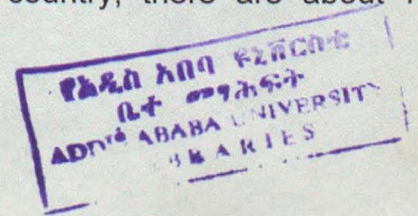 country, there are about
የአዲስ አበባ ዩኒቨርሲቲ
ቤተ መፃሕፍት
ADDIS ABABA UNIVERSITY
LIBRARIES